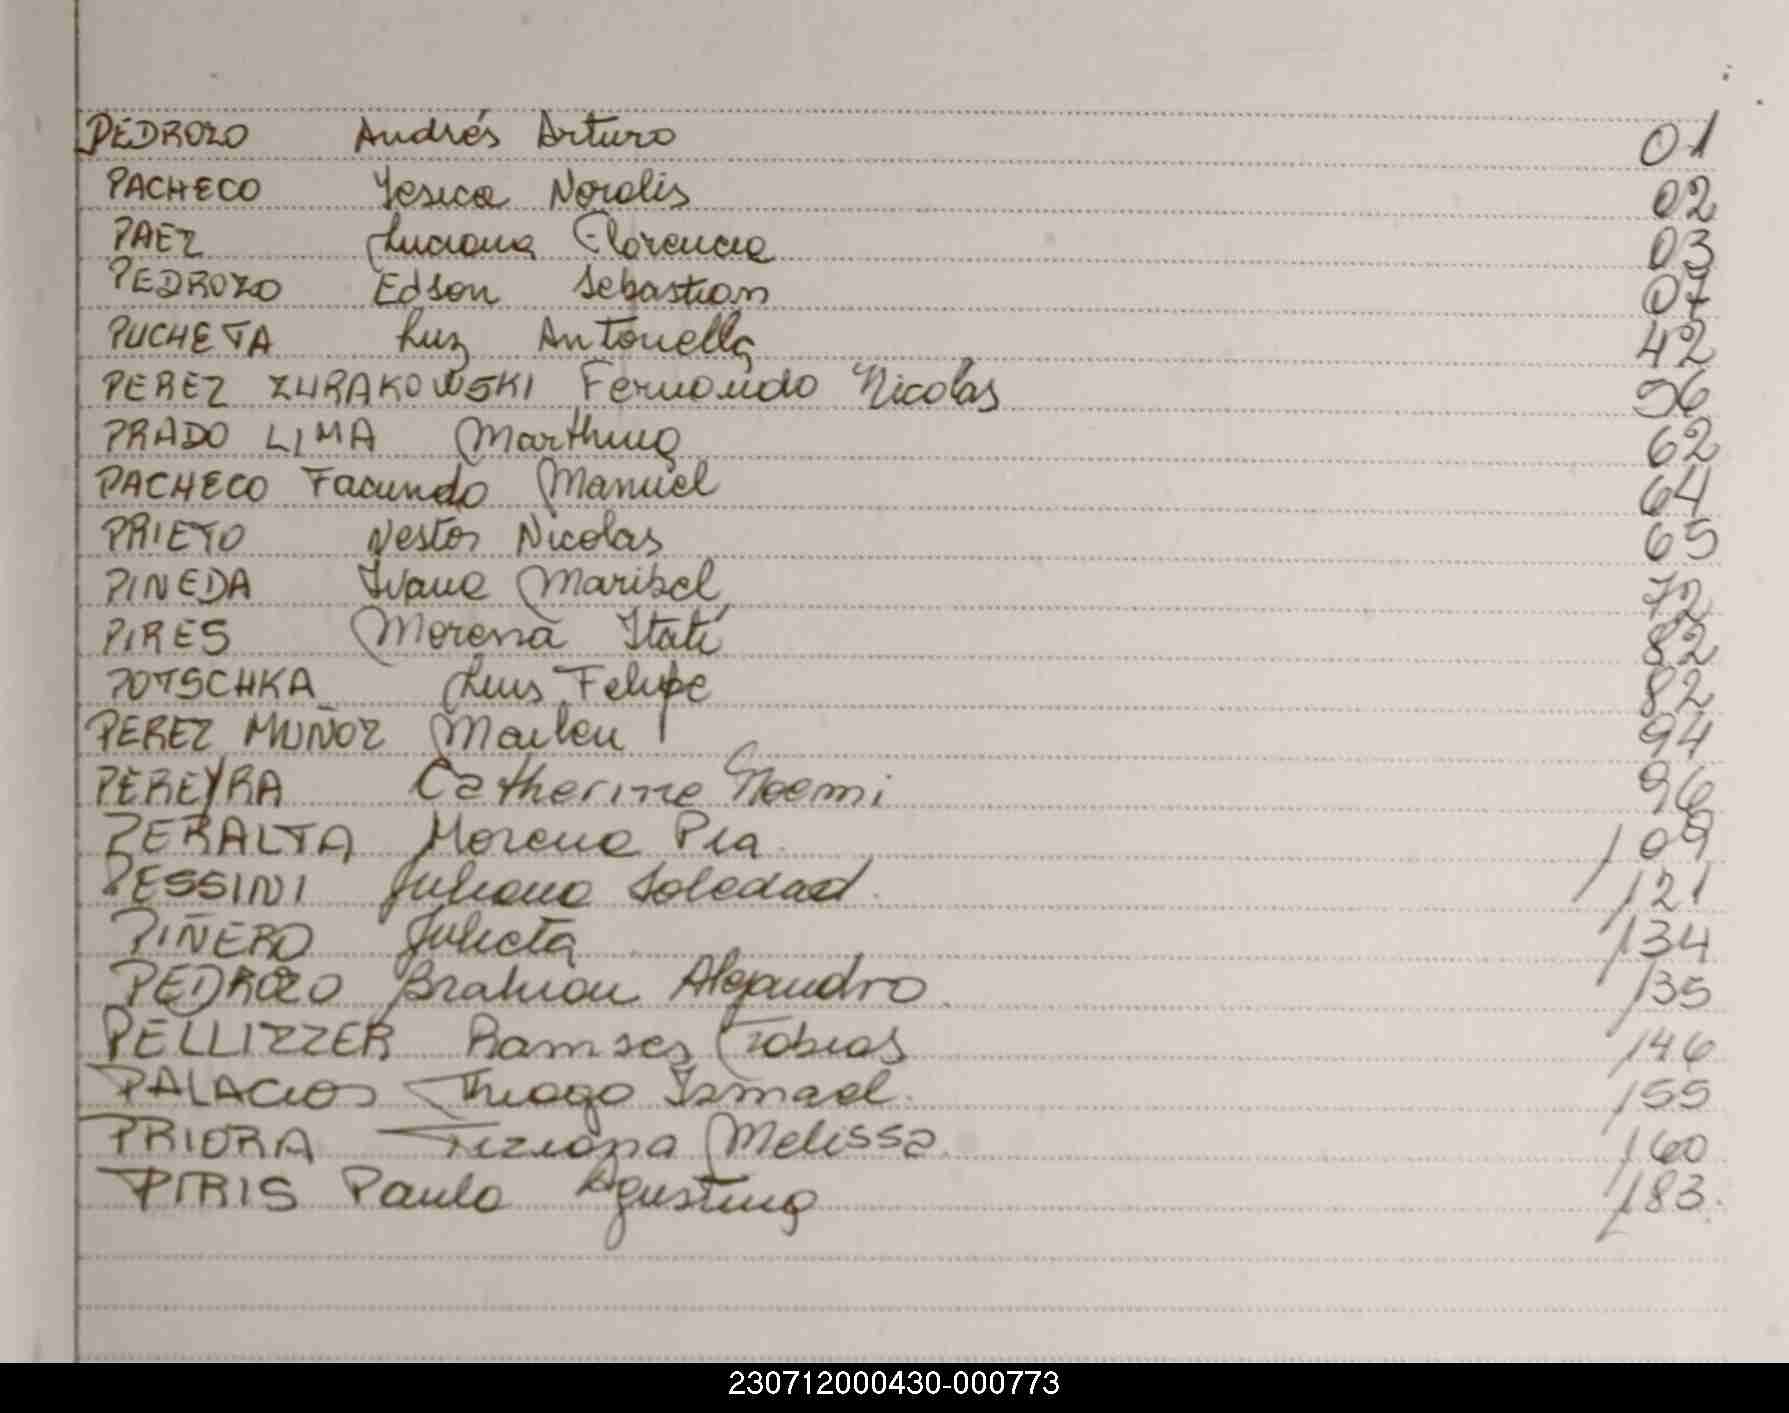 PEDROZO Andrés Arturo 01
PACHECO Yesica Noralis 02
PAEZ Luciana Florencia 03
PEDROZO Edson Sebastian 07
PUCHETA Luz Antonella 42
PEREZ ZURAKOWSKI Fernando Nicolás 56
PRADO LIMA Marthina 62
PACHECO Facundo Manuel 64
PRIETO Nestor Nicolas 65
PINEDA Ivana Marisel 72
PIRES Morena Itatí 82
POTSCHKA Luis Felipe 82
PEREZ MUÑOZ Mailen 94
PEREYRA Catherine Noemi 96
PERALTA Morena Pia 109
PESSINI Juliana Soledad 121
PIÑERO Julieta 134
PEDROZO Brahian Alejandro 135
PELLIZZER Ramses Tobias 146
PALACIOS Thiago Ismael 155
PRIORA Tiziana Melissa 160
PIRIS Paula Agustina 183
230712000430-000773